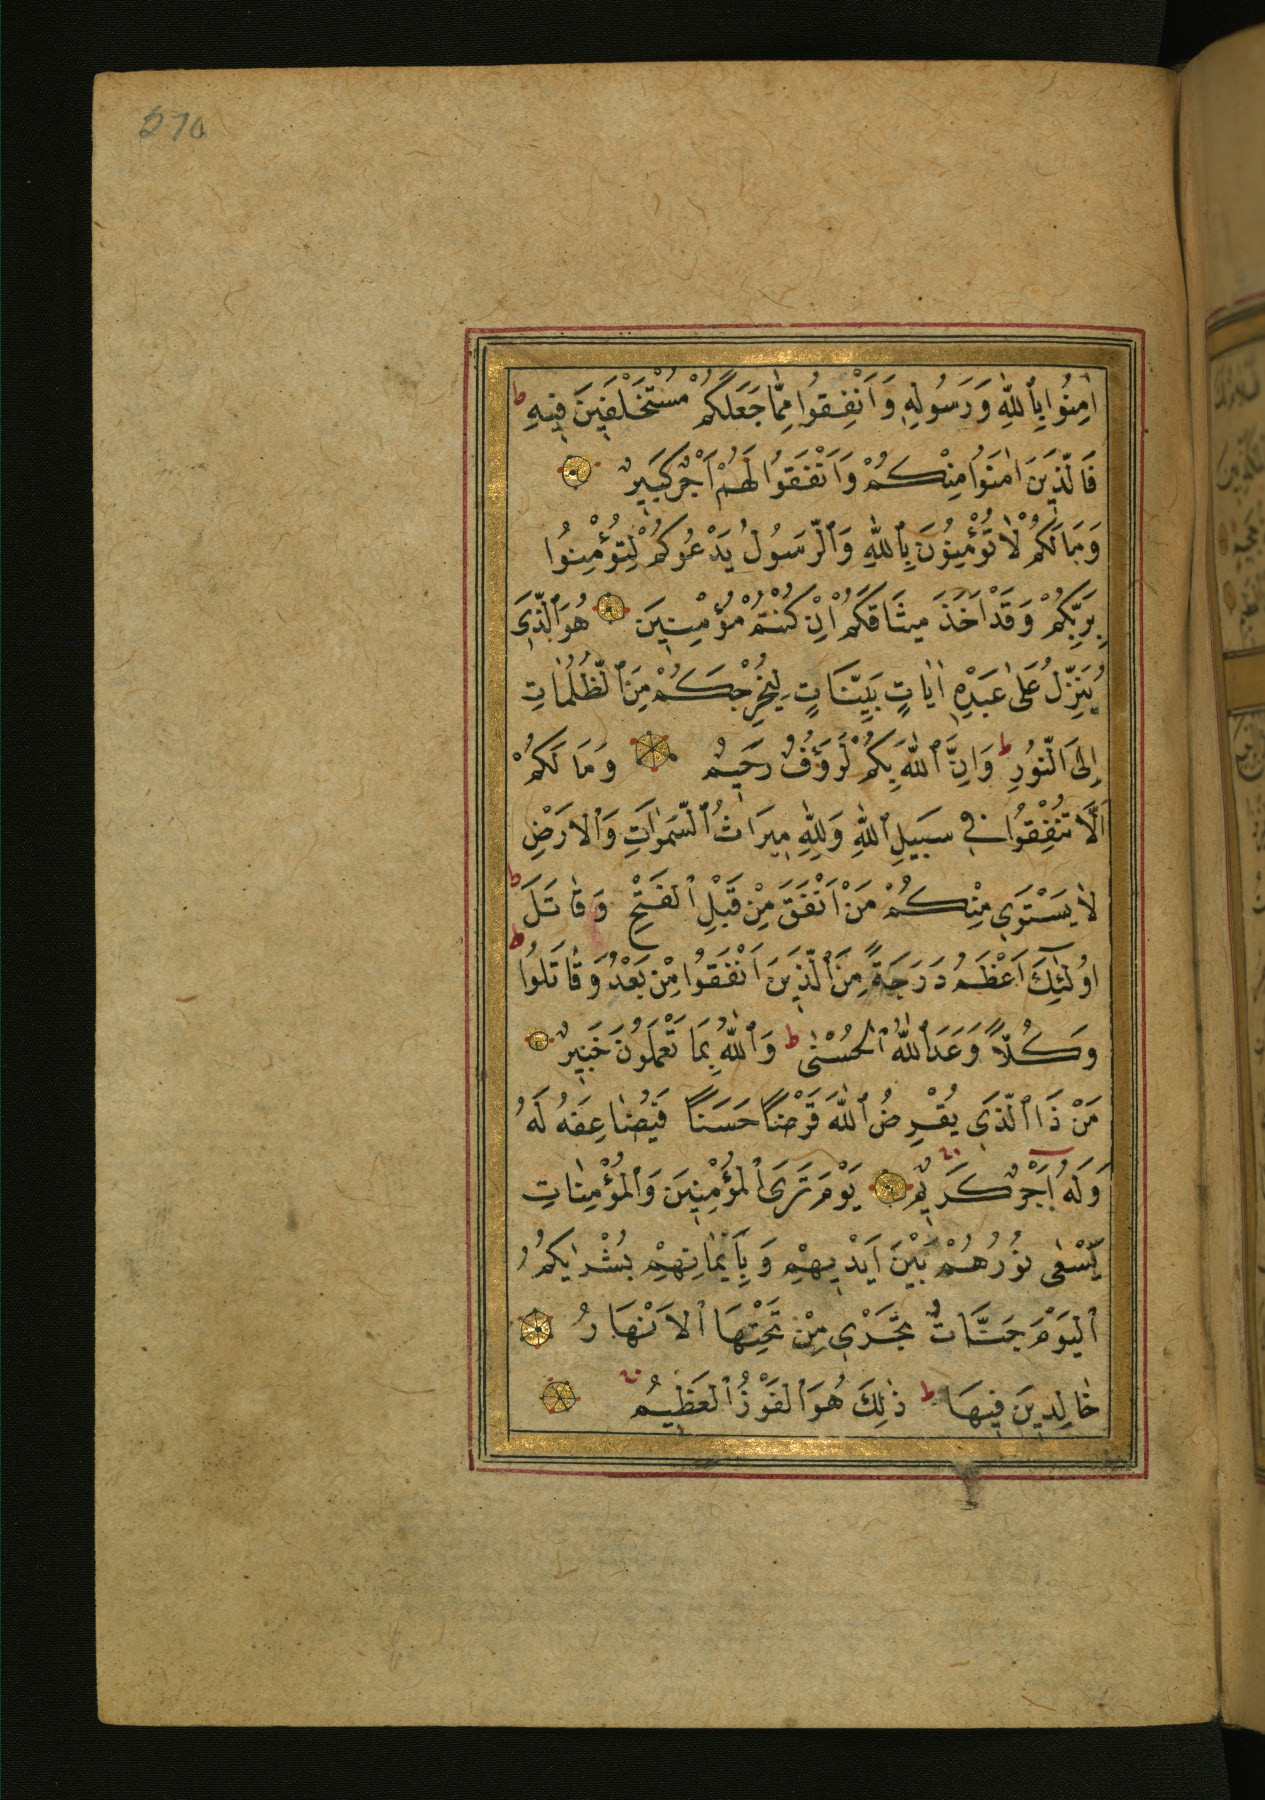 270
اٰمِنُوا بِٱللّٰهِ وَرَسُولِهٖ وَاَنْفِقُوا مِمَّا جَعَلَكُمْ مُسْتَخْلَفِينَ فِيهِ ط
فَالَّذِينَ اٰمَنُوا مِنْكُمْ وَاَنْفَقُوا لَهُمْ اَجْرٌ كَبِيرٌ
وَمَا لَكُمْ لَا تُؤْمِنُونَ بِٱللّٰهِ وَٱلرَّسُولُ يَدْعُوكُمْ لِتُؤْمِنُوا
بِرَبِّكُمْ وَقَدْ اَخَذَ مِيثَاقَكُمْ اِنْ كُنْتُمْ مُؤْمِنِينَ هُوَ ٱلَّذِي
يُنَزِّلُ عَلٰى عَبْدِهٖ اٰيَاتٍ بَيِّنَاتٍ لِيُخْرِجَكُمْ مِنَ ٱلظُّلُمَاتِ
اِلَى ٱلنُّورِ ط وَاِنَّ ٱللّٰهَ بِكُمْ لَرَؤُفٌ رَحِيمٌ وَمَا لَكُمْ
اَلَّا تُنْفِقُوا فِي سَبِيلِ ٱللّٰهِ وَلِلّٰهِ مِيرَاثُ ٱلسَّمٰوَاتِ وَٱلْاَرْضِ
لَا يَسْتَوِي مِنْكُمْ مَنْ اَنْفَقَ مِنْ قَبْلِ ٱلْفَتْحِ وَقَاتَلَ ط
اُولٰئِكَ اَعْظَمُ دَرَجَةً مِنَ ٱلَّذِينَ اَنْفَقُوا مِنْ بَعْدُ وَقَاتَلُوا ط
وَكُلًّا وَعَدَ ٱللّٰهُ ٱلْحُسْنٰى ط وَٱللّٰهُ بِمَا تَعْمَلُونَ خَبِيرٌ
مَنْ ذَا ٱلَّذِي يُقْرِضُ ٱللّٰهَ قَرْضًا حَسَنًا فَيُضَاعِفَهُ لَهُ
وَلَهُ اَجْرٌ كَرِيمٌ يَوْمَ تَرَى ٱلْمُؤْمِنِينَ وَٱلْمُؤْمِنَاتِ
يَسْعٰى نُورُهُمْ بَيْنَ اَيْدِيهِمْ وَبِاَيْمَانِهِمْ بُشْرٰيكُمُ
ٱلْيَوْمَ جَنَّاتٌ تَجْرِي مِنْ تَحْتِهَا ٱلْاَنْهَارُ
خَالِدِينَ فِيهَا ط ذٰلِكَ هُوَ ٱلْفَوْزُ ٱلْعَظِيمُ